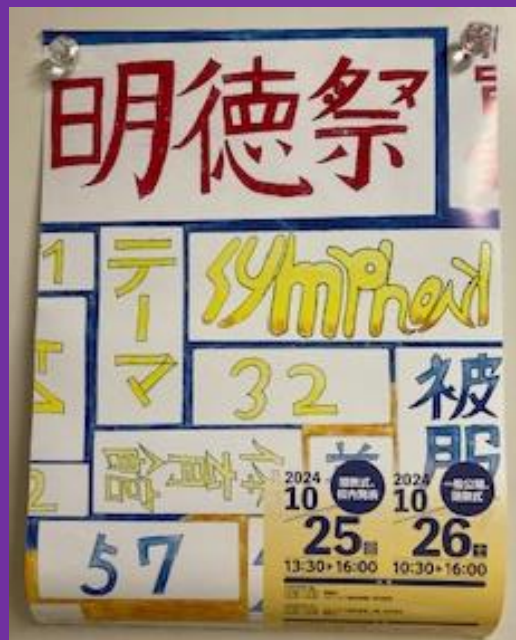 明徳祭
1
テーマ
symphony
32
被服
体育館
2024
10
25
13:30▸16:00
2024
10
一般公開
26
10:30▸16:00
57